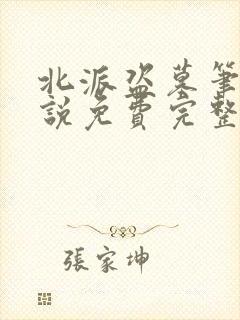 北派盗墓筆
說免費完整
張家坤